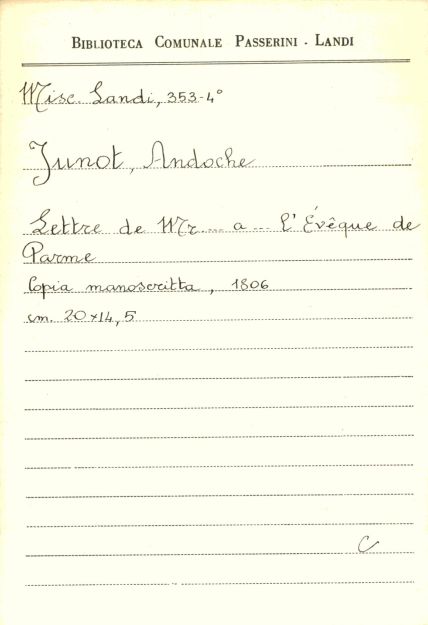 BIBLIOTECA COMUNALE PASSERINI - LANDI
Misc. Landi, 353-4°
Junot, Andoche
Lettre de Mr.... a ... l'Évêque de
Parme
Copia manoscritta, 1806
cm. 20×14,5
C